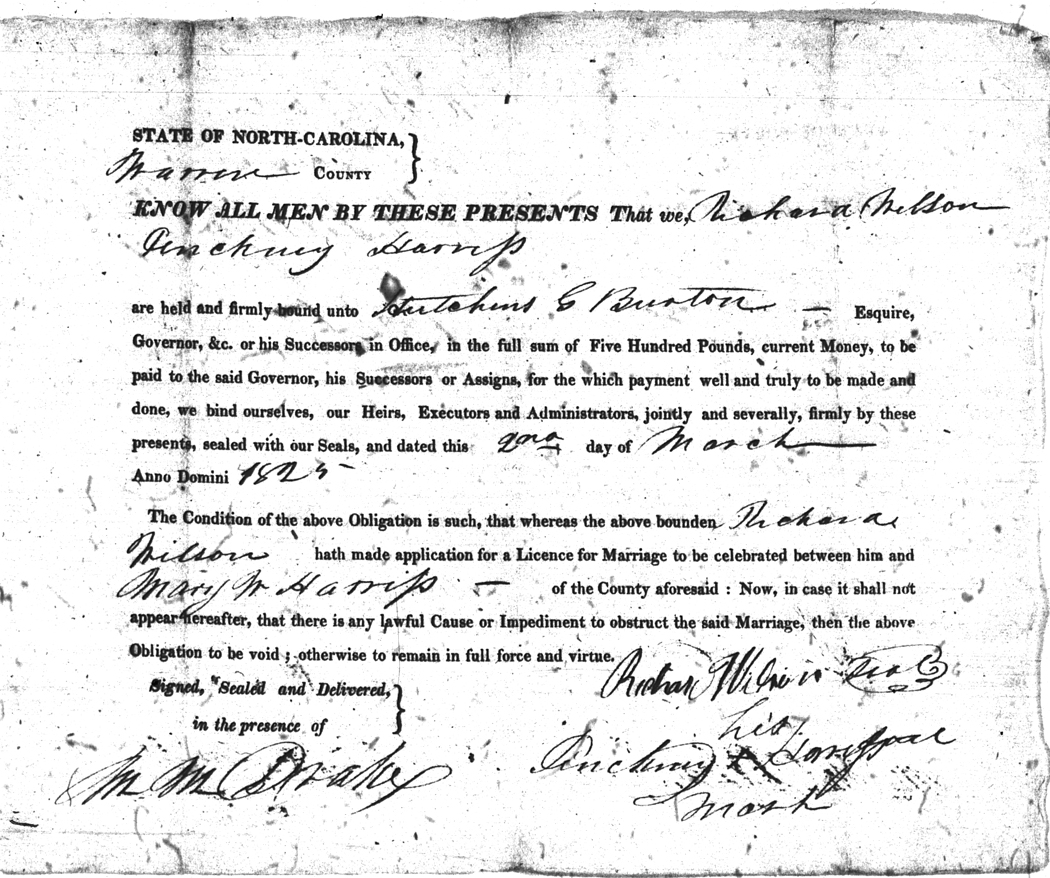 STATE OF NORTH-CAROLINA,
Warren COUNTY
KNOW ALL MEN BY THESE PRESENTS That we, Richard Wilson
Pinckney Harriss
are held and firmly bound unto Hutchins G Burton — Esquire,
Governor, &c. or his Successors in Office, in the full sum of Five Hundred Pounds, current Money, to be
paid to the said Governor, his Successors or Assigns, for the which payment well and truly to be made and
done, we bind ourselves, our Heirs, Executors and Administrators, jointly and severally, firmly by these
presents, sealed with our Seals, and dated this 2nd day of March
Anno Domini 1825
The Condition of the above Obligation is such, that whereas the above bounden Richard
Wilson hath made application for a Licence for Marriage to be celebrated between him and
Mary W Harriss — of the County aforesaid : Now, in case it shall not
appear hereafter, that there is any lawful Cause or Impediment to obstruct the said Marriage, then the above
Obligation to be void ; otherwise to remain in full force and virtue.
Richard Wilson Seal
Signed, Sealed and Delivered,
in the presence of
his
Pinckney X Harriss seal
mark
M M Drake